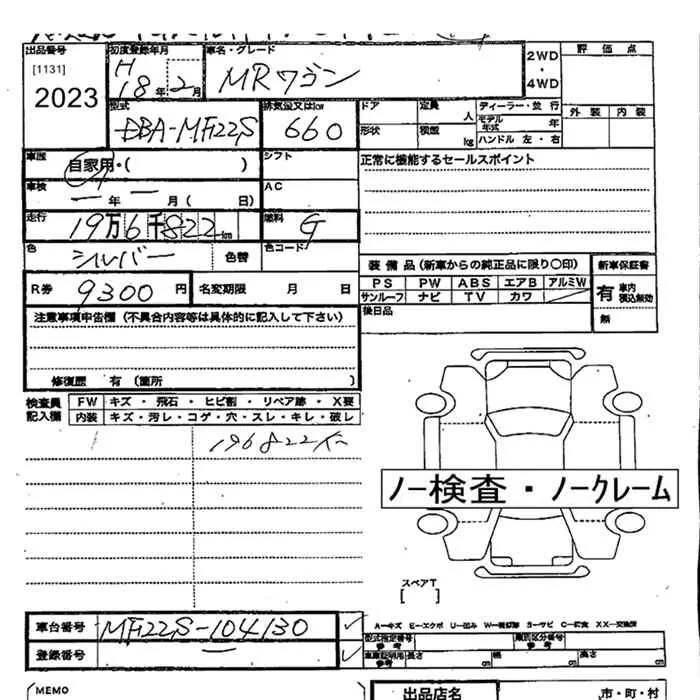 出品番号
[1131]
2023
初度登録年月
H
18年2月
車名・グレード
MRワゴン
2WD
・
4WD
評価点
外装 内装
型式
DBA-MF22S
排気量又はkw
660
ドア
定員
人
形状
積載
kg
ディーラー・並行
モデル年式 年
ハンドル 左・右
車歴
自家用・( )
シフト
正常に機能するセールスポイント
車検
年 月 ( 日)
AC
走行
19万6千822km
燃料
G
色
シルバー
色替
色コード
R券
9300円
名変期限 月 日
装備品(新車からの純正品に限り〇印)
新車保証書
PS PW ABS エアB アルミW
サンルーフ ナビ TV カワ
有 車内 積込無効
無
後日品
注意事項申告欄(不具合内容等は具体的に記入して下さい)
修復歴 有 (箇所 )
検査員
記入欄
FW キズ・飛石・ヒビ割・リペア跡・X要
内装 キズ・汚レ・コゲ・穴・スレ・キレ・破レ
ノー検査・ノークレーム
スペアT
[ ]
車台番号
MF22S-104130
登録番号
A－キズ E－エクボ U－凹み
型式指定番号
参考
類別区分番号
参考
車庫証明用
参考
長さ cm
幅 cm
高さ cm
MEMO
出品店名
市・町・村